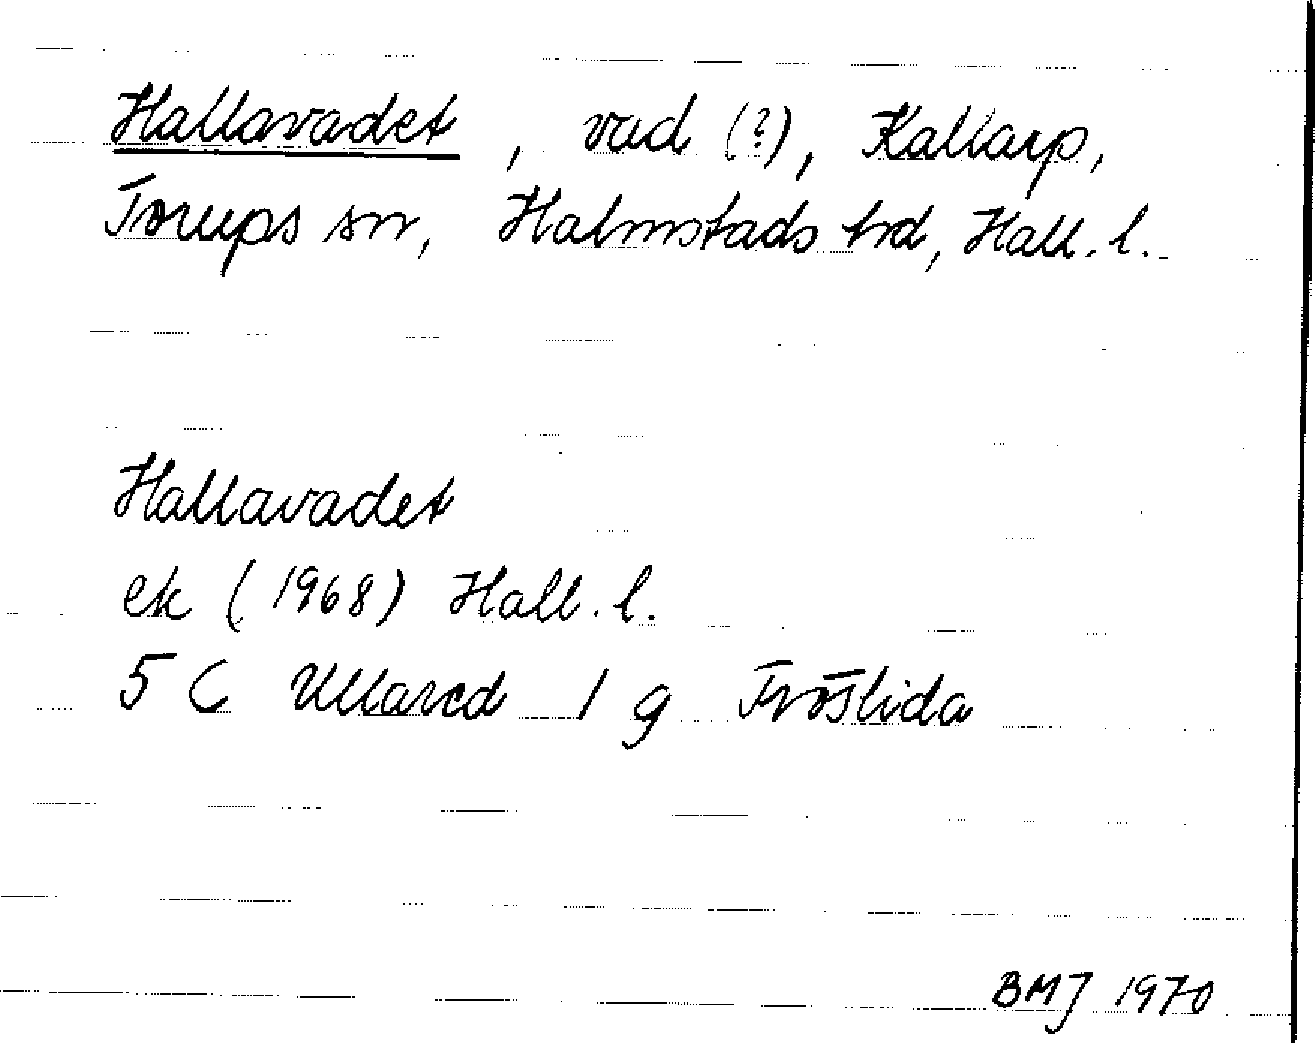 Hallavadet, vad (?), Kallarp,
Torups sn, Halmstads hd, Hall. l.
Hallavadet
ek (1968) Hall. l.
5 C Ullared 1 g Fröslida
BMJ 1970